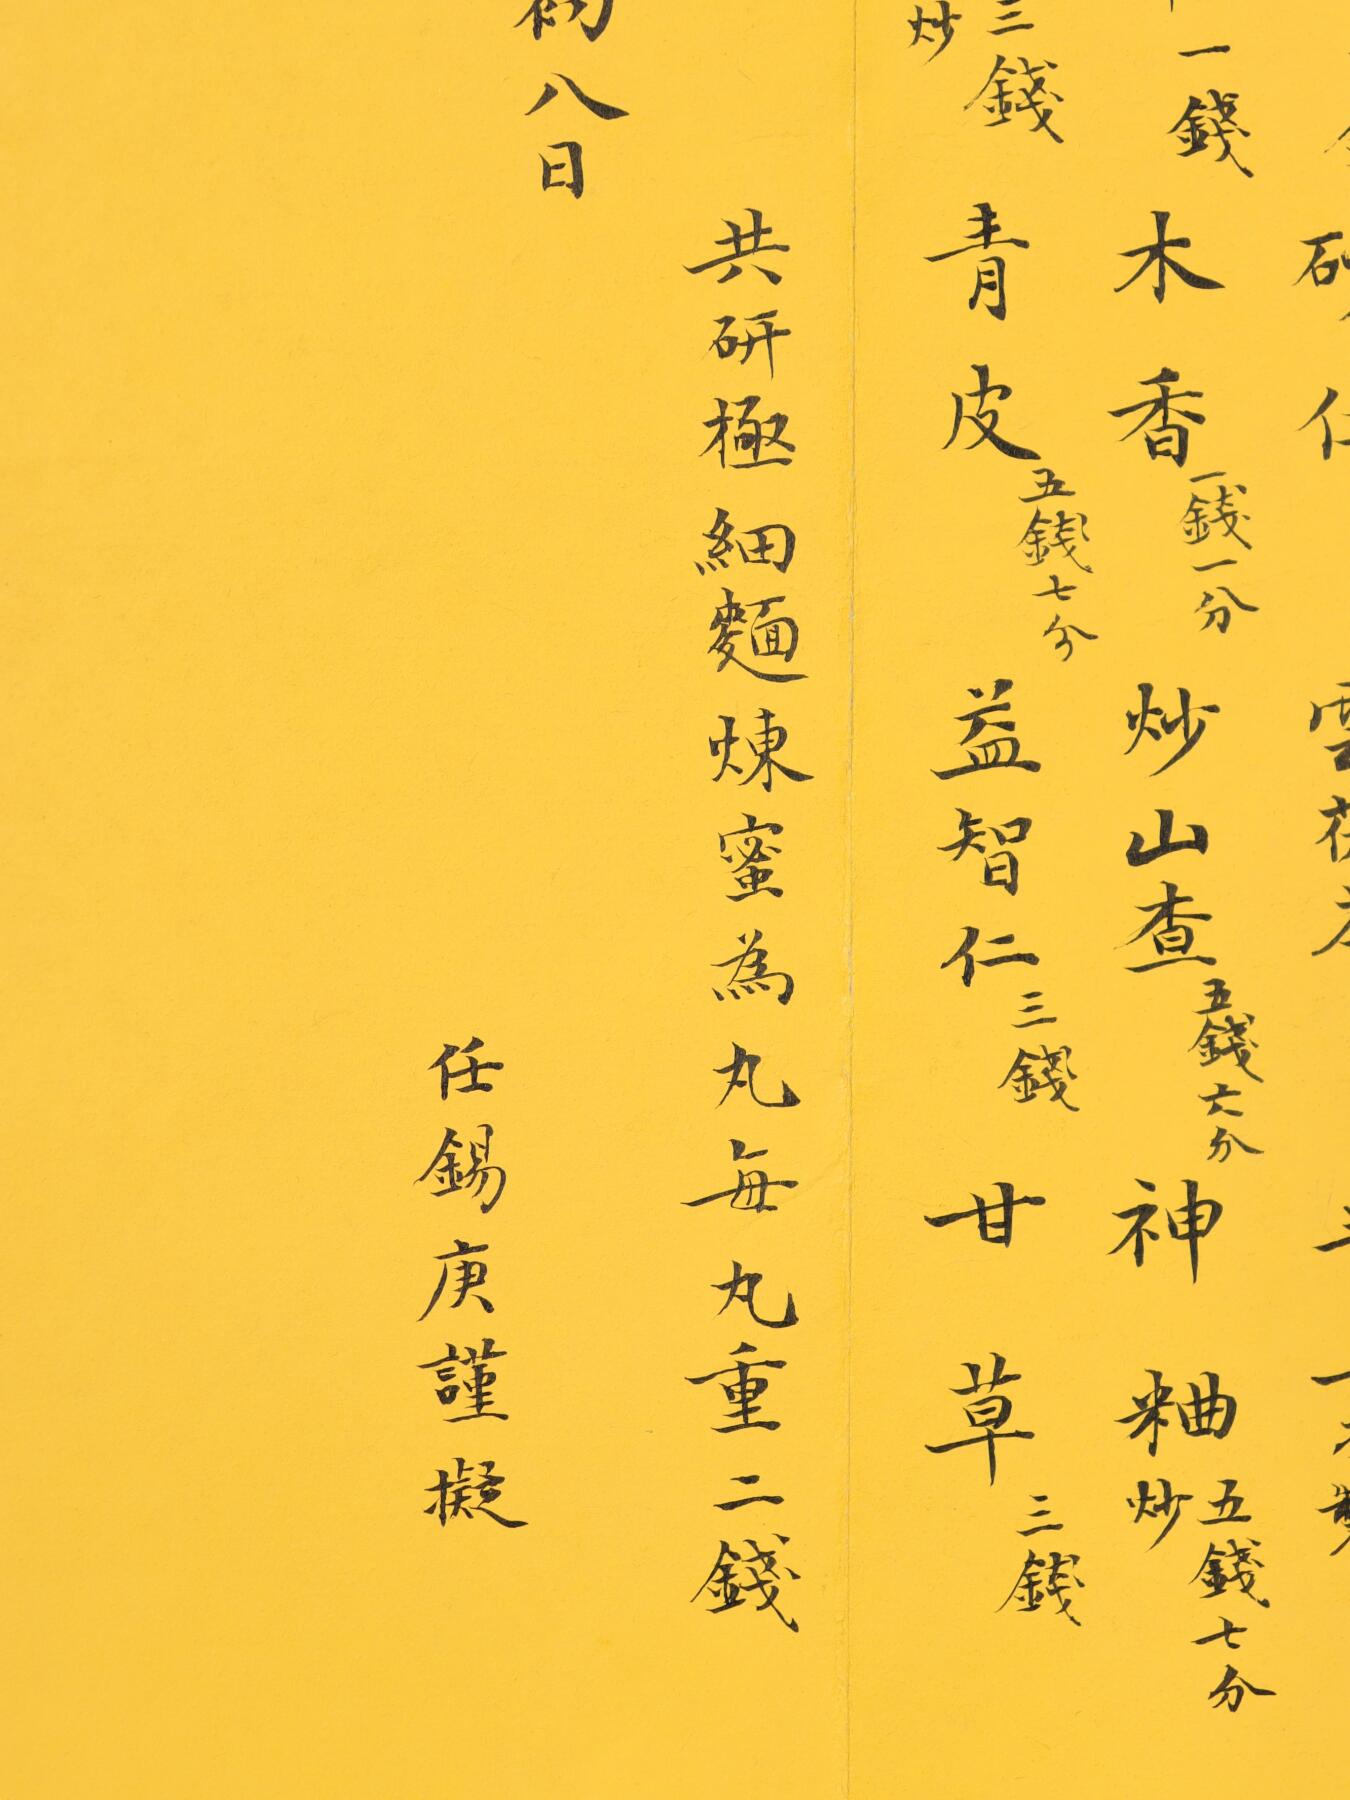 一錢木香一錢一分炒山查五錢六分神粬炒五錢七分
炒三錢青皮五錢七分益智仁三錢甘草三錢
共研極細麵煉蜜為丸每丸重二錢
初八日
任錫庚謹擬